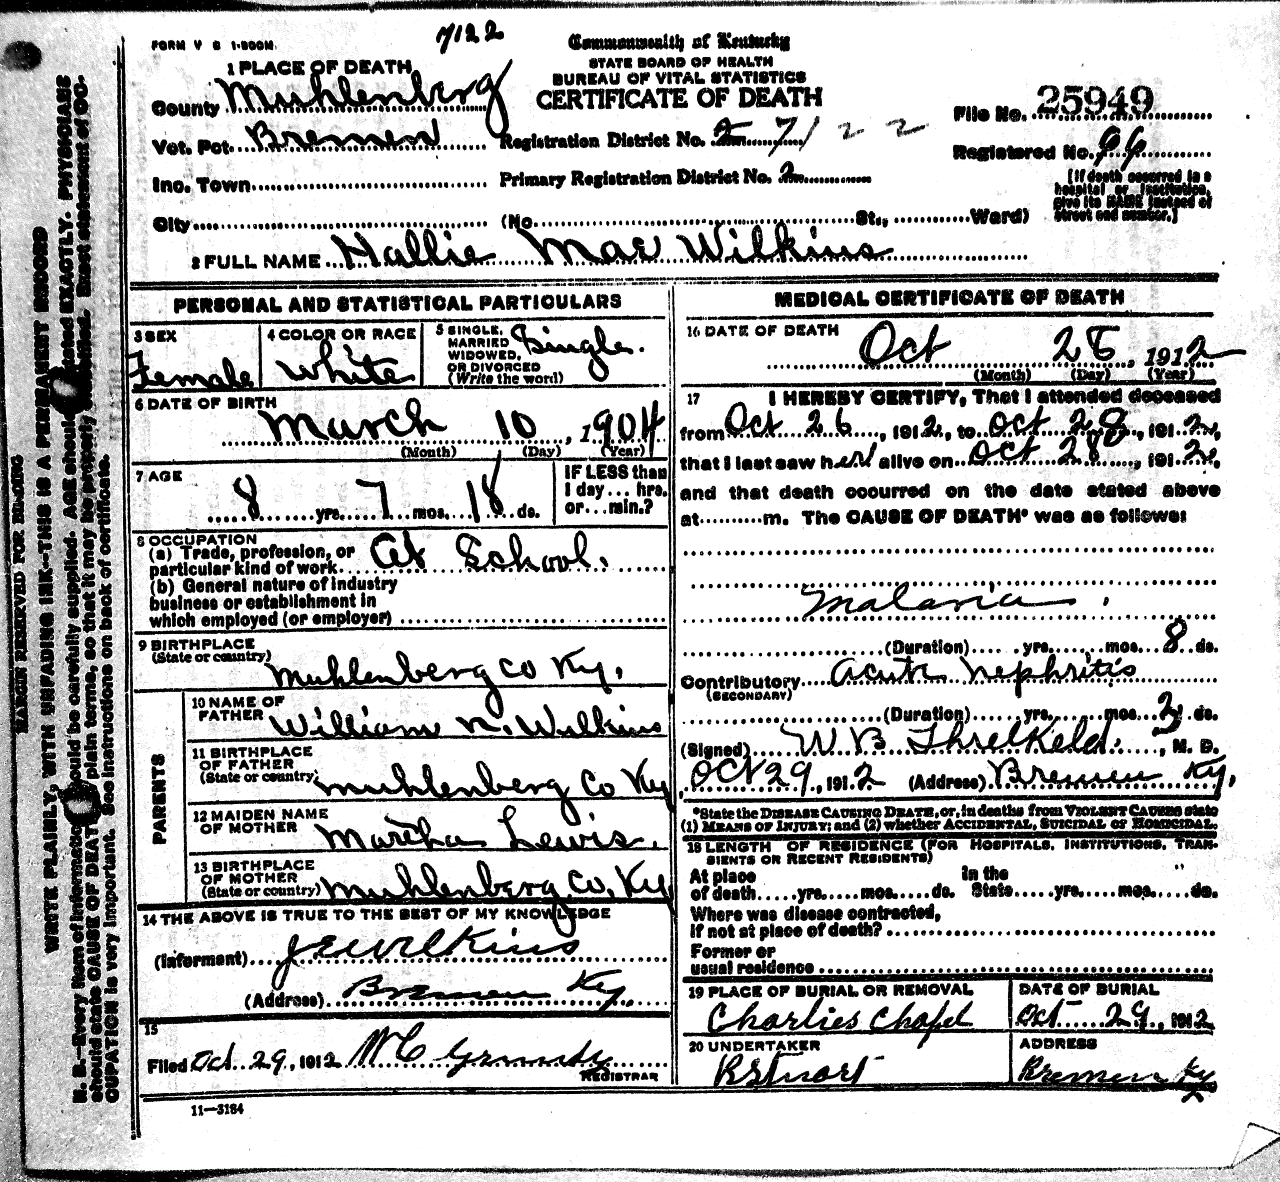 FORM V S 1-500M.
7122
Commonwealth of Kentucky
STATE BOARD OF HEALTH
BUREAU OF VITAL STATISTICS
CERTIFICATE OF DEATH
1 PLACE OF DEATH
County Muhlenberg
Vot. Pct. Bremen
Inc. Town
City
Registration District No. 7122
Primary Registration District No. 2
(No. St., Ward)
File No. 25949
Registered No. 96
[If death occurred in a hospital or institution, give its NAME instead of street and number.]
2 FULL NAME Hallie Mae Wilkins
PERSONAL AND STATISTICAL PARTICULARS
3 SEX
Female
4 COLOR OR RACE
White
5 SINGLE, MARRIED WIDOWED, OR DIVORCED
(Write the word)
Single.
6 DATE OF BIRTH
March 10, 1904
(Month) (Day) (Year)
7 AGE
8 yrs. 7 mos. 18 ds.
IF LESS than
1 day... hrs.
or...min.?
8 OCCUPATION
(a) Trade, profession, or
particular kind of work. At School.
(b) General nature of industry
business or establishment in
which employed (or employer)
9 BIRTHPLACE
(State or country)
Muhlenberg Co Ky.
PARENTS
10 NAME OF
FATHER William N. Wilkins
11 BIRTHPLACE
OF FATHER
(State or country) Muhlenberg Co Ky
12 MAIDEN NAME
OF MOTHER Martha Lewis.
13 BIRTHPLACE
OF MOTHER
(State or country) Muhlenberg Co. Ky
14 THE ABOVE IS TRUE TO THE BEST OF MY KNOWLEDGE
(Informant) J E Wilkins
(Address) Bremen Ky
15
Filed Oct. 29, 1912 W C Grundy
REGISTRAR
11-3184
MEDICAL CERTIFICATE OF DEATH
16 DATE OF DEATH
Oct 28, 1912
(Month) (Day) (Year)
17 I HEREBY CERTIFY, That I attended deceased
from Oct 26, 1912, to Oct 28, 1912,
that I last saw her alive on Oct 28, 1912,
and that death occurred on the date stated above
at m. The CAUSE OF DEATH* was as follows:
Malaria.
(Duration) yrs. mos. 8 ds.
Contributory Acute Nephritis
(SECONDARY)
(Duration) yrs. mos. 3 ds.
(Signed) W B Threlkeld., M. D.
Oct 29, 1912 (Address) Bremen Ky.
*State the DISEASE CAUSING DEATH, or, in deaths from VIOLENT CAUSES state
(1) MEANS OF INJURY; and (2) whether ACCIDENTAL, SUICIDAL or HOMICIDAL.
18 LENGTH OF RESIDENCE (FOR HOSPITALS, INSTITUTIONS, TRANSIENTS OR RECENT RESIDENTS)
At place
of death yrs. mos. ds.
In the
State yrs. mos. ds.
Where was disease contracted,
if not at place of death?
Former or
usual residence
19 PLACE OF BURIAL OR REMOVAL
Charlies Chapel
DATE OF BURIAL
Oct 29, 1912
20 UNDERTAKER
R Stuart
ADDRESS
Bremen Ky
MARGIN RESERVED FOR BINDING
WRITE PLAINLY, WITH UNFADING INK—THIS IS A PERMANENT RECORD
N. B.—Every item of information should be carefully supplied. AGE should be stated EXACTLY. PHYSICIANS
should state CAUSE OF DEATH in plain terms, so that it may be properly classified. Exact statement of OC-
CUPATION is very important. See instructions on back of certificate.